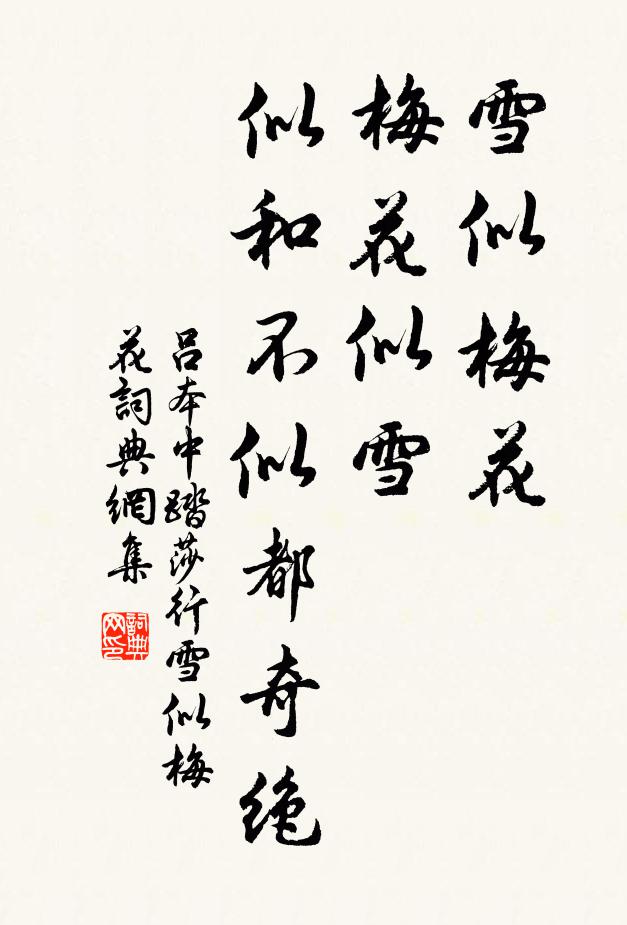 雪似梅花
梅花似雪
似和不似都奇绝
呂本中踏莎行雪似梅
花詞典網集
詞典网印